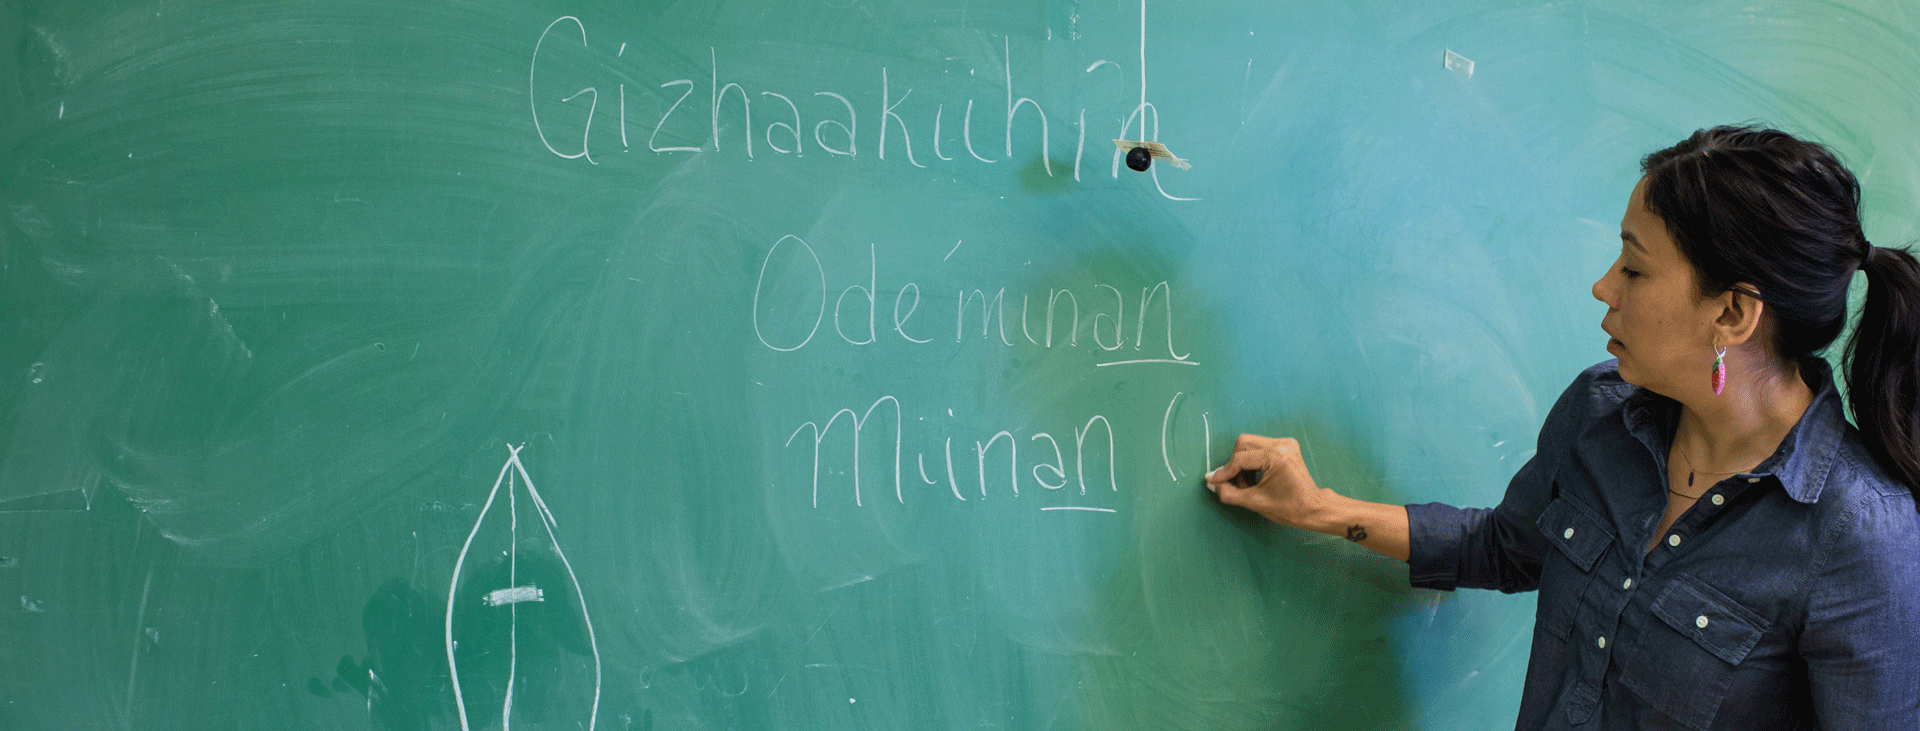 Gizhaakiihin
Odé'minan
Miinan (